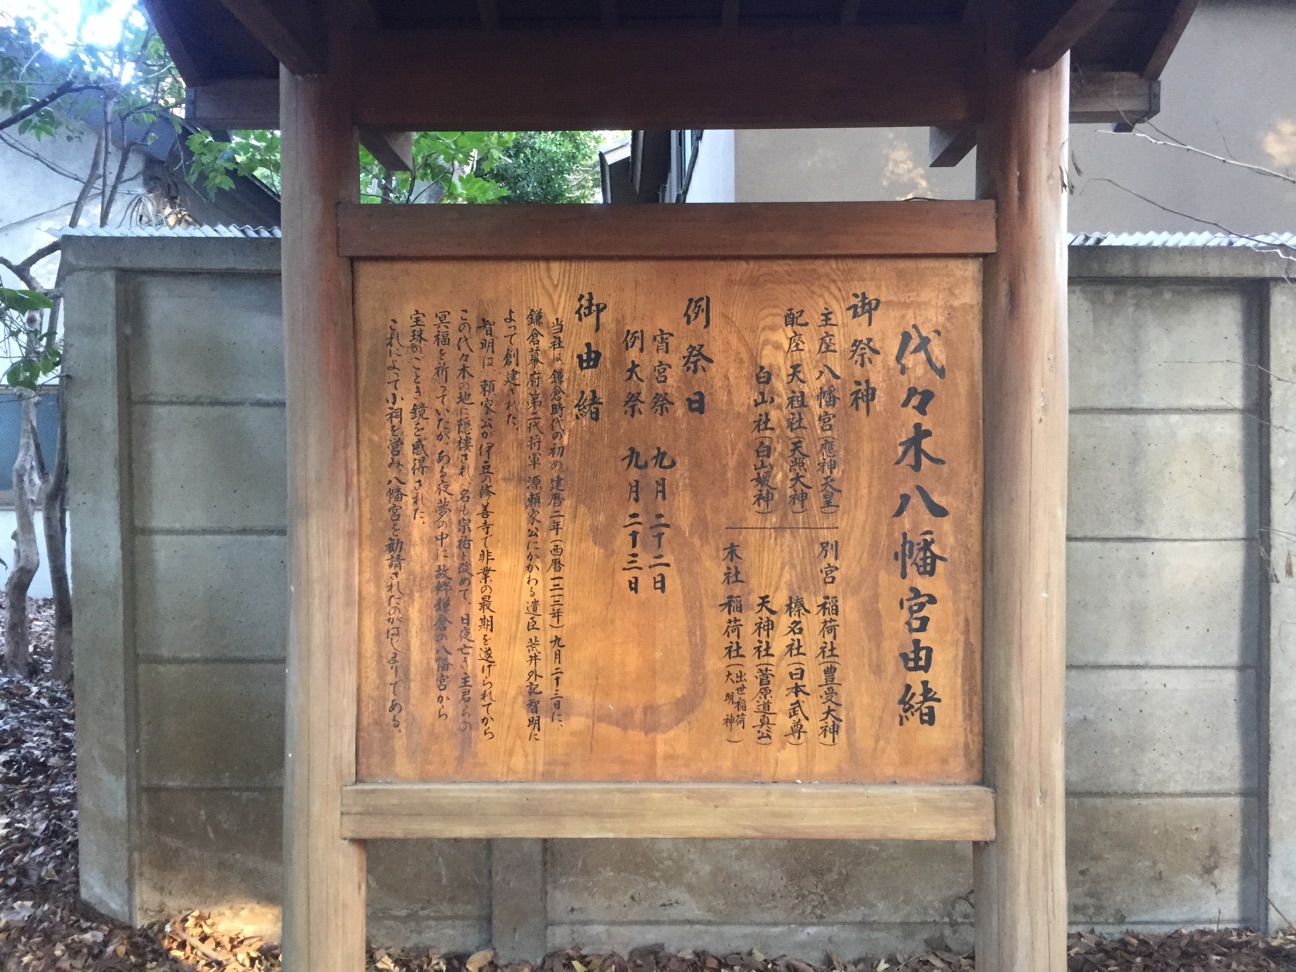 代々木八幡宮由緒
御祭神
主座八幡宮(應神天皇)
配座天祖社(天照大神)
白山社(白山媛神)
別宮 稲荷社(豊受大神)
榛名社(日本武尊)
天神社(菅原道真公)
末社 稲荷社(出世稲荷大明神)
例祭日
宵宮祭 九月二十二日
例大祭 九月二十三日
御由緒
当社は鎌倉時代の初め建暦二年(西暦一二一二年)九月二十三日に、
鎌倉幕府第二代将軍源頼家公にかかわる遺臣 荒井外記智明に
よって創建された。
智明は、頼家公が伊豆の修善寺で非業の最期を遂げられてから
この代々木の地に隠棲され、名も宗祐と改めて、日夜亡き主君らの
冥福を祈っていたが、ある夜夢の中に故郷鎌倉の八幡宮から
宝珠のごとき鏡を感得された。
これによって小祠を営み、八幡宮を勧請されたのがはじまりである。